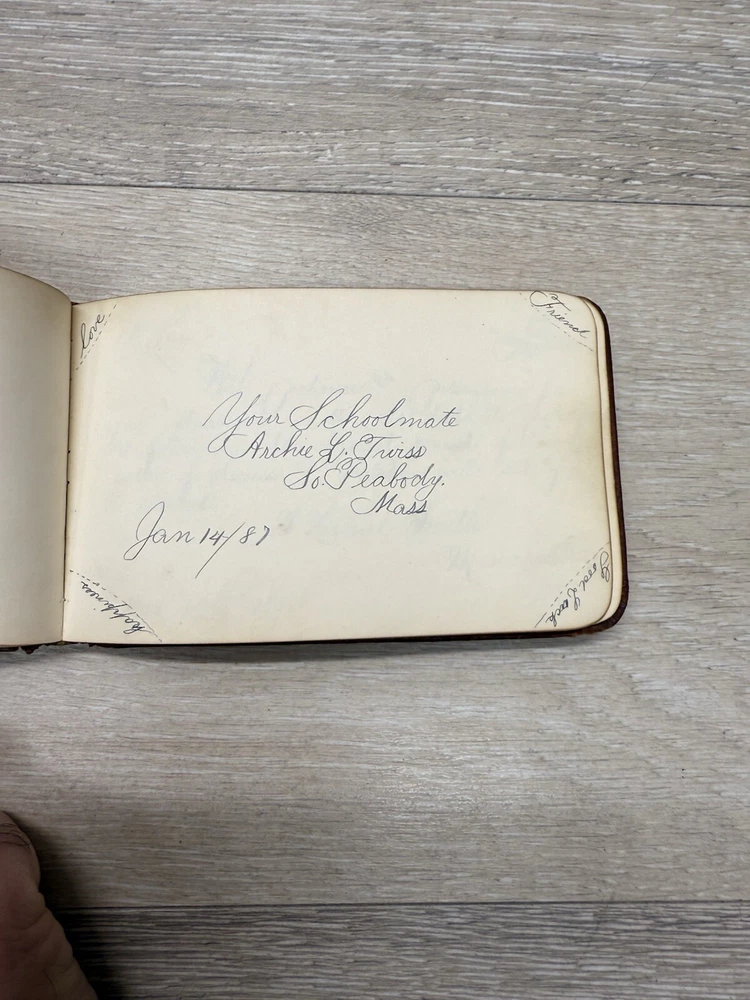 Love
Friend
Your Schoolmate
Archie L. Twiss
So. Peabody.
Mass
Jan 14/87
happiness
Good Luck